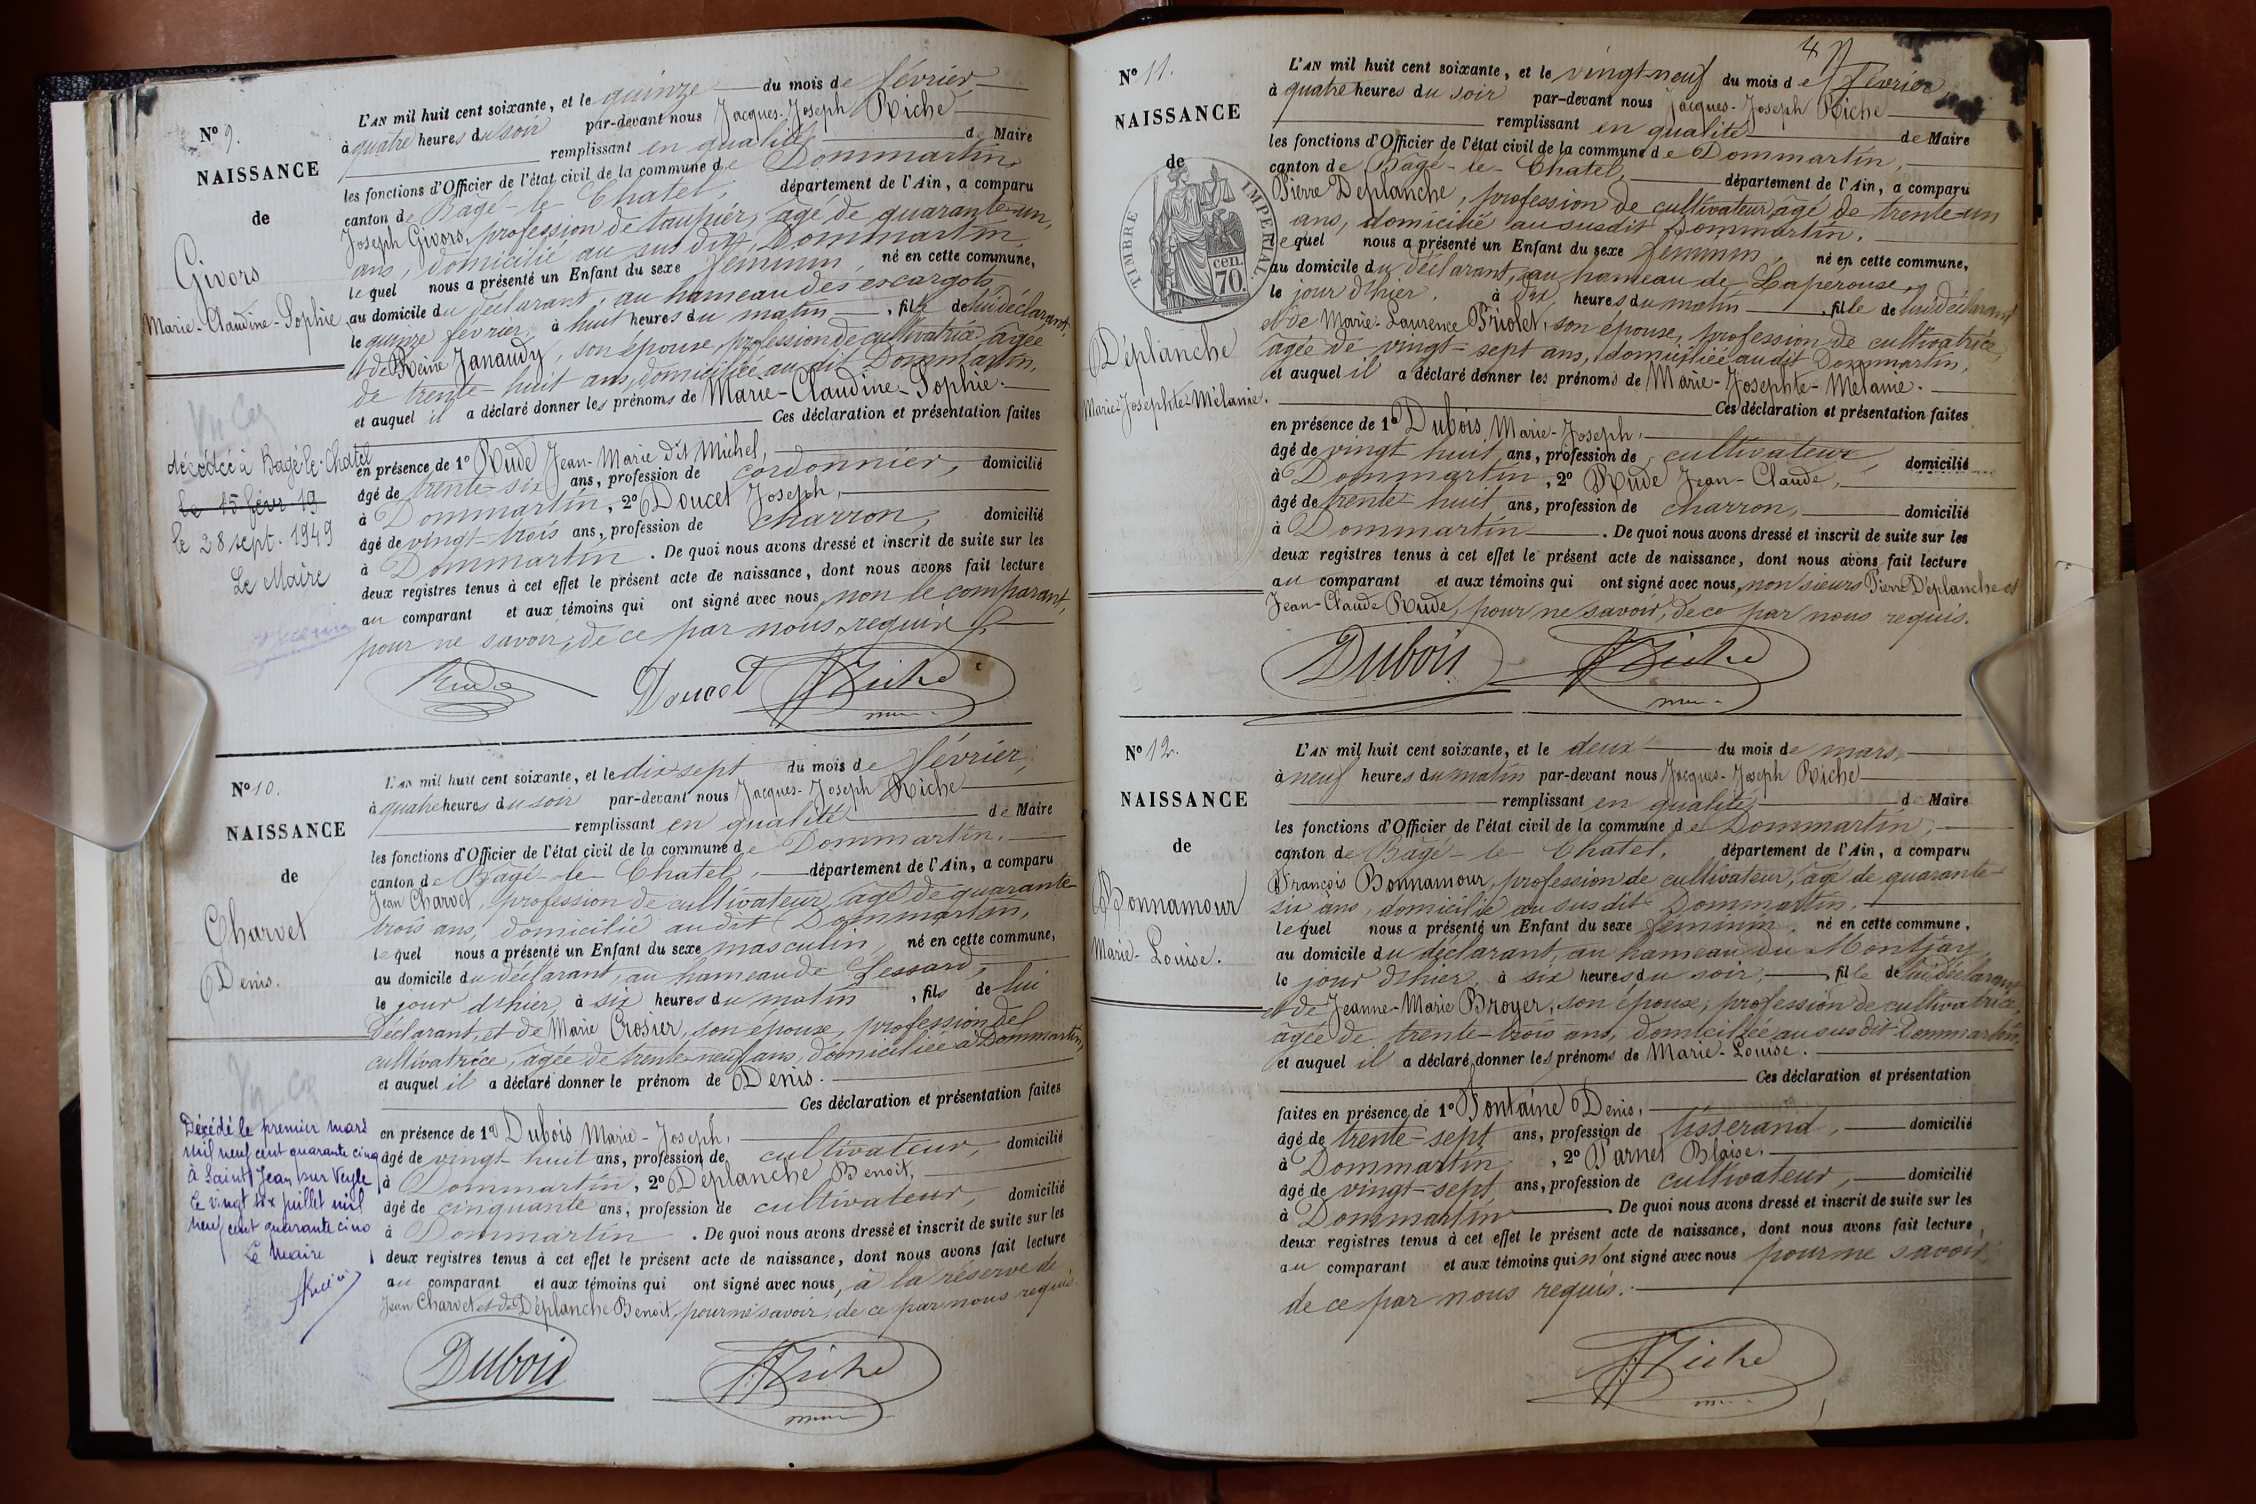 Nº 9.
NAISSANCE
de
Givors
Marie-Claudine-Sophie
décédée à Bagé-le-Chatel
le 15 févr 19
le 28 sept. 1949
Le Maire
L'AN mil huit cent soixante, et le quinze du mois de février
à quatre heures du soir par-devant nous Jacques-Joseph Riche
remplissant en qualité de Maire
les fonctions d'Officier de l'état civil de la commune de Dommartin,
canton de Bagé-le-Chatel, département de l'Ain, a comparu
Joseph Givors, profession de taupier, âgé de quarante-un
ans, domicilié au susdit Dommartin,
lequel nous a présenté un Enfant du sexe féminin, né en cette commune,
au domicile du déclarant, au hameau des escargots,
le quinze février, à huit heures du matin, fille de lui déclarant,
et de Reine Janaudy, son épouse, profession de cultivatrice, âgée
de trente-huit ans, domiciliée au dit Dommartin,
et auquel il a déclaré donner les prénoms de Marie-Claudine-Sophie.
Ces déclaration et présentation faites
en présence de 1º Rude Jean-Marie dit Michel,
âgé de trente-six ans, profession de cordonnier, domicilié
à Dommartin, 2º Doucet Joseph,
âgé de vingt-trois ans, profession de charron, domicilié
à Dommartin. De quoi nous avons dressé et inscrit de suite sur les
deux registres tenus à cet effet le présent acte de naissance, dont nous avons fait lecture
au comparant et aux témoins qui ont signé avec nous, non le comparant,
pour ne savoir, de ce par nous requis
Rude Doucet Riche
Nº 10.
NAISSANCE
de
Charvet
Denis.
Décédé le premier mars
mil neuf cent quarante cinq
à Saint Jean sur Veyle
Le vingt six juillet mil
neuf cent quarante cinq
Le Maire
L'AN mil huit cent soixante, et le dix sept du mois de février,
à quatre heures du soir par-devant nous Jacques-Joseph Riche
remplissant en qualité de Maire
les fonctions d'Officier de l'état civil de la commune de Dommartin.
canton de Bagé-le-Chatel, département de l'Ain, a comparu
Jean Charvet, profession de cultivateur, âgé de quarante
trois ans, domicilié audit Dommartin,
lequel nous a présenté un Enfant du sexe masculin, né en cette commune,
au domicile du déclarant, au hameau de Lessard,
le jour d'hier, à six heures du matin, fils de lui
déclarant, et de Marie Crosier, son épouse, profession de
cultivatrice, âgée de trente-neuf ans, domiciliée à Dommartin,
et auquel il a déclaré donner le prénom de Denis.
Ces déclaration et présentation faites
en présence de 1º Dubois Marie-Joseph,
âgé de vingt-huit ans, profession de cultivateur, domicilié
à Dommartin, 2º Déplanche Benoit,
âgé de cinquante ans, profession de cultivateur, domicilié
à Dommartin. De quoi nous avons dressé et inscrit de suite sur les
deux registres tenus à cet effet le présent acte de naissance, dont nous avons fait lecture
au comparant et aux témoins qui ont signé avec nous, à la réserve de
Jean Charvet et de Déplanche Benoit, pour ne savoir, de ce par nous requis.
Dubois Riche
4
Nº 11.
NAISSANCE
de
TIMBRE IMPERIAL
70 cen.
Déplanche
Marie-Josephte-Mélanie.
L'AN mil huit cent soixante, et le vingt-neuf du mois de février
à quatre heures du soir par-devant nous Jacques-Joseph Riche
remplissant en qualité de Maire
les fonctions d'Officier de l'état civil de la commune de Dommartin,
canton de Bagé-le-Chatel, département de l'Ain, a comparu
Pierre Déplanche, profession de cultivateur, âgé de trente-un
ans, domicilié au susdit Dommartin.
lequel nous a présenté un Enfant du sexe féminin, né en cette commune,
au domicile du déclarant, au hameau de Laperouse,
le jour d'hier, à dix heures du matin, fille de lui déclarant
et de Marie-Laurence Priolet, son épouse, profession de cultivatrice,
âgée de vingt-sept ans, domiciliée audit Dommartin,
et auquel il a déclaré donner les prénoms de Marie-Josephte-Mélanie.
Ces déclaration et présentation faites
en présence de 1º Dubois Marie-Joseph,
âgé de vingt huit ans, profession de cultivateur, domicilié
à Dommartin, 2º Rude Jean-Claude,
âgé de trente-huit ans, profession de charron, domicilié
à Dommartin. De quoi nous avons dressé et inscrit de suite sur les
deux registres tenus à cet effet le présent acte de naissance, dont nous avons fait lecture
au comparant et aux témoins qui ont signé avec nous, non sieurs Pierre Déplanche et
Jean-Claude Rude, pour ne savoir, de ce par nous requis.
Dubois Riche
Nº 12.
NAISSANCE
de
Bonnamour
Marie-Louise.
L'AN mil huit cent soixante, et le deux du mois de mars,
à neuf heures du matin par-devant nous Jacques-Joseph Riche
remplissant en qualité de Maire
les fonctions d'Officier de l'état civil de la commune de Dommartin,
canton de Bagé-le-Chatel, département de l'Ain, a comparu
François Bonnamour, profession de cultivateur, âgé de quarante-
six ans, domicilié au susdit Dommartin,
lequel nous a présenté un Enfant du sexe féminin, né en cette commune,
au domicile du déclarant, au hameau du Montjay,
le jour d'hier, à six heures du soir, fille de lui déclarant
et de Jeanne-Marie Broyer, son épouse, profession de cultivatrice,
âgée de trente-trois ans, domiciliée au susdit Dommartin,
et auquel il a déclaré donner les prénoms de Marie-Louise.
Ces déclaration et présentation
faites en présence de 1º Fontaine Denis,
âgé de trente-sept ans, profession de tisserand, domicilié
à Dommartin, 2º Parnet Blaise,
âgé de vingt-sept ans, profession de cultivateur, domicilié
à Dommartin. De quoi nous avons dressé et inscrit de suite sur les
deux registres tenus à cet effet le présent acte de naissance, dont nous avons fait lecture
au comparant et aux témoins qui n'ont signé avec nous pour ne savoir,
de ce par nous requis.
Riche